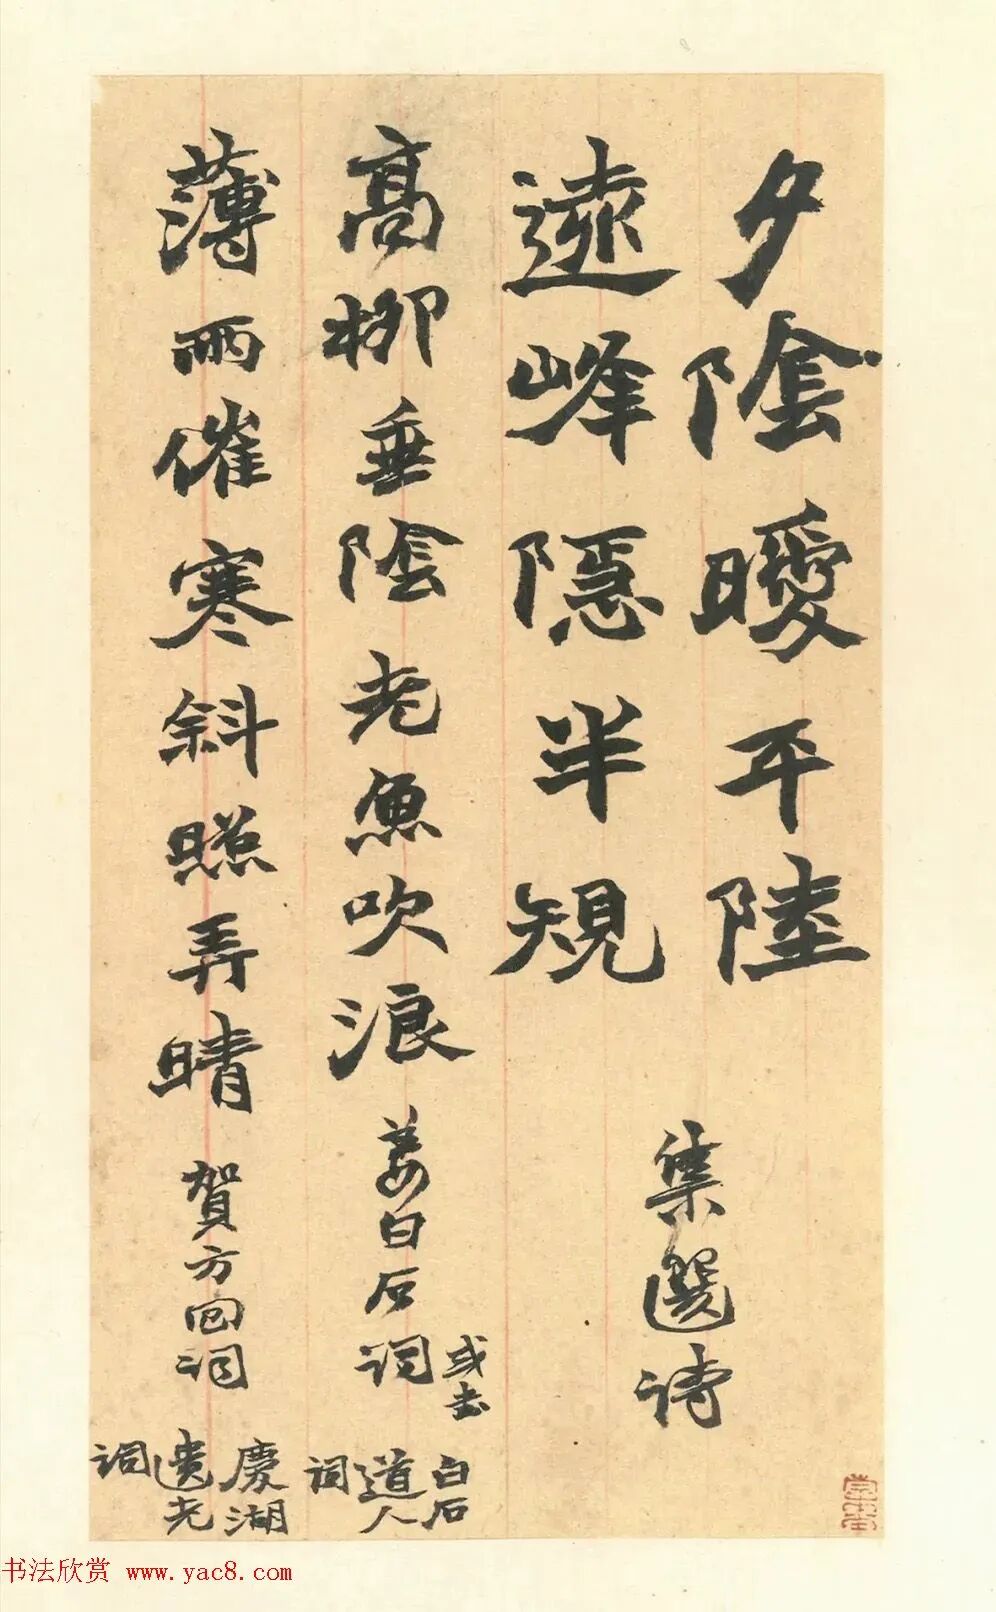 夕陰曖平陸
遠峰隱半規
集選詩
高柳垂陰老魚吹浪
姜白石詞
或書
白石
道人
詞
薄雨催寒斜照弄晴
賀方回詞
慶湖
遺老
詞
书法欣赏 www.yac8.com